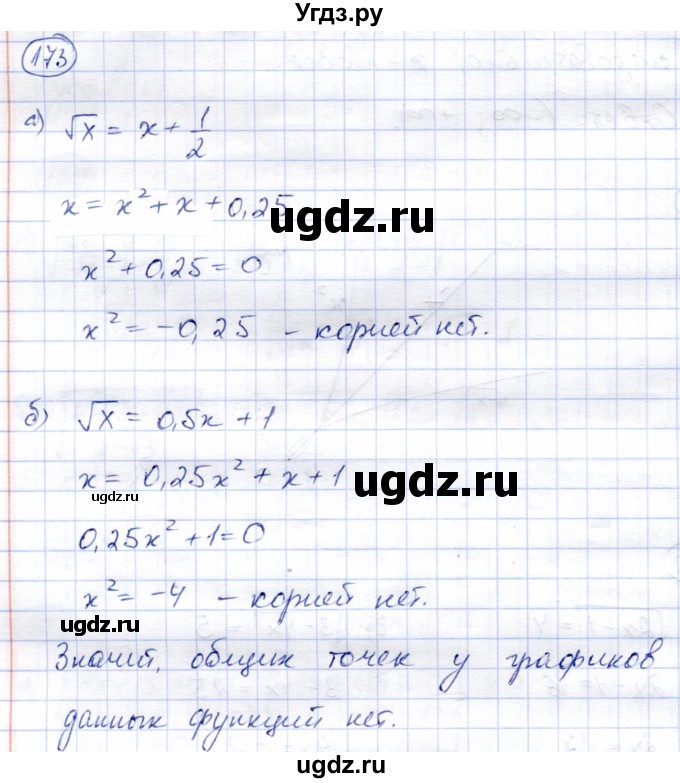 Угдз.ру
173
а) √x = x + 1/2
x = x² + x + 0,25
ugdz.ru
x² + 0,25 = 0
x² = -0,25 - корней нет.
б) √x = 0,5x + 1
x = 0,25x² + x + 1
ugdz.ru
ugdz.ru
0,25x² + 1 = 0
x² = -4 - корней нет.
ugdz.ru
Значий, общих точек у графиков
данных функций нет.
ugdz.ru
ugdz.ru